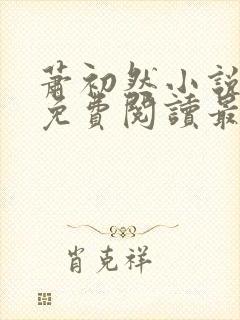 蕭初然小說
免費閱讀最
肖克祥